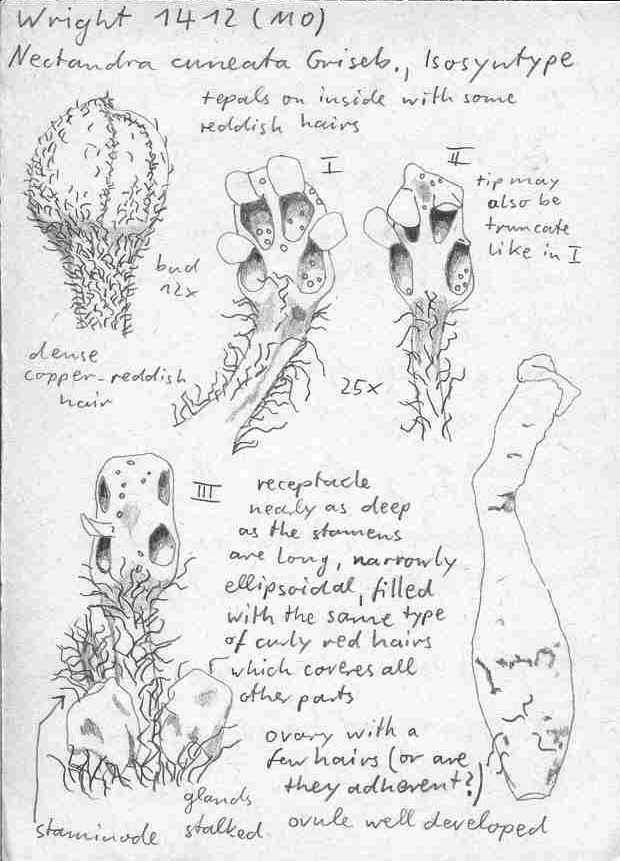 Wright 1412 (MO)
Nectandra cuneata Griseb., Isosyntype
tepals on inside with some
reddish hairs
I
II
tip may
also be
truncate
like in I
bud
12x
dense
copper-reddish
hair
25x
III
receptacle
nearly as deep
as the stamens
are long, narrowly
ellipsoidal, filled
with the same type
of curly red hairs
which coveres all
other parts
ovary with a
few hairs (or are
they adherent?)
glands
stalked
staminode
ovule well developed